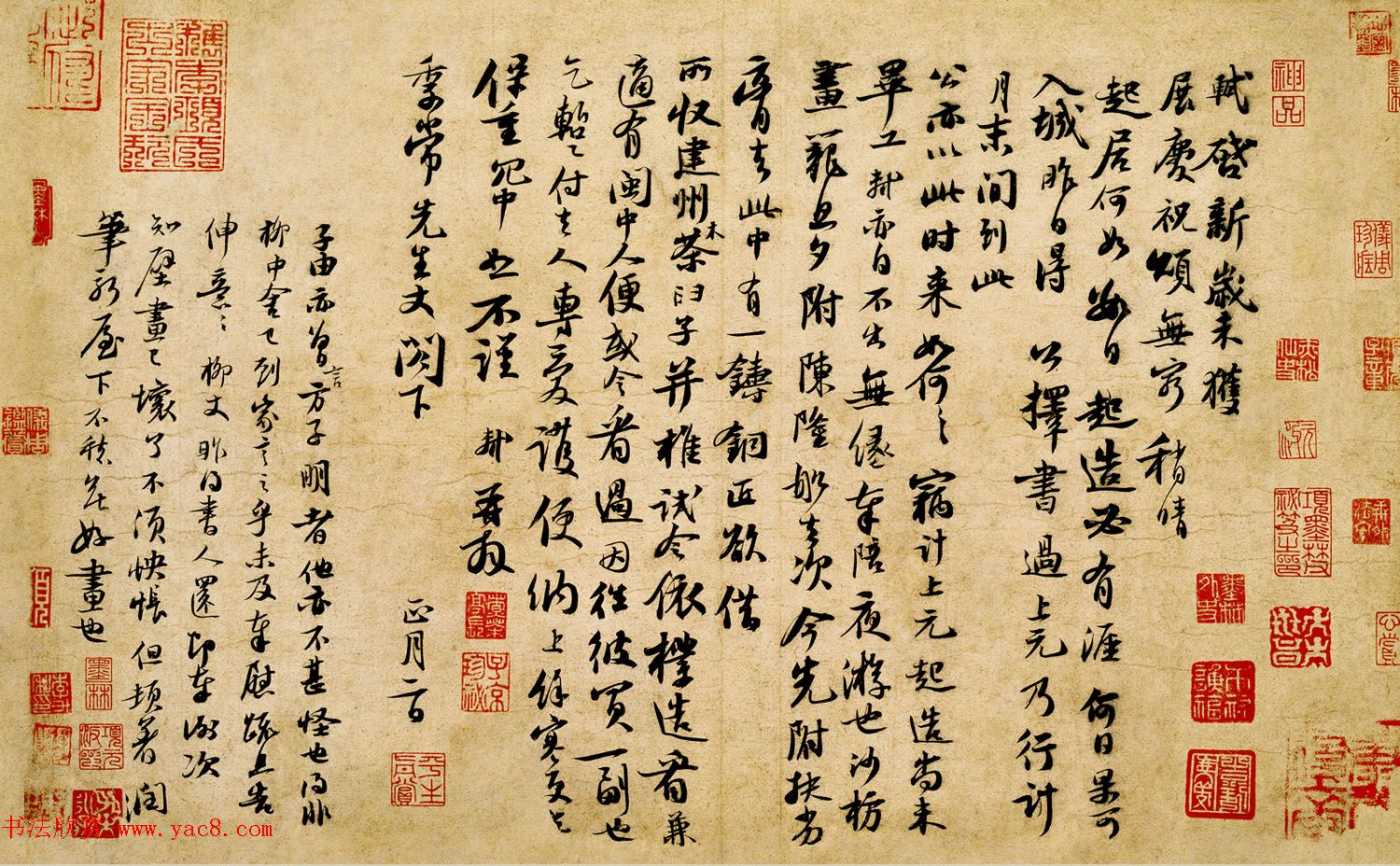 軾啓新歲未獲
展慶祝頌無窮稍晴
起居何如數日起造必有涯何日果可
入城昨日得公擇書過上元乃行計
月末間到此
公亦以此時來如何ミ竊計上元起造尚未
畢工軾亦自不出無緣奉陪夜游也沙枋
畫籠旦夕附陳隆船去次今先附扶劣
膏去此中有一鑄銅匠欲借
所收建州木茶臼子并椎試令依樣造看兼
適有閩中人便或令看過因往彼買一副也
乞暫ミ付去人專愛護便納上餘寒更乞
保重冗中恕不謹軾再拜
季常先生丈閣下
正月二日
子由亦曾言方子明者他亦不甚怪也得非
柳中舍已到家言之乎未及奉慰疏且告
伸意ミ柳丈昨得書人還即奉謝次
知壁畫已壞了不須怏悵但頓著潤
筆新屋下不愁無好畫也
书法欣赏 www.yac8.com
神品
項墨林父祕笈之印
平生真賞
子京珍祕